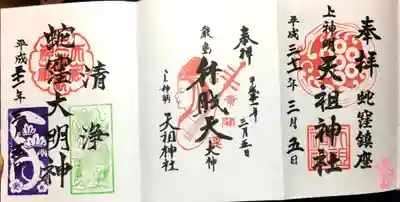 奉拝
蛇窪鎮座
上神明
天祖神社
平成三十一年三月五日
奉拝
平成三十一年
三月五日
弁財天
大神
上神明
天祖神社
清浄
蛇窪大明神
平成三十一年